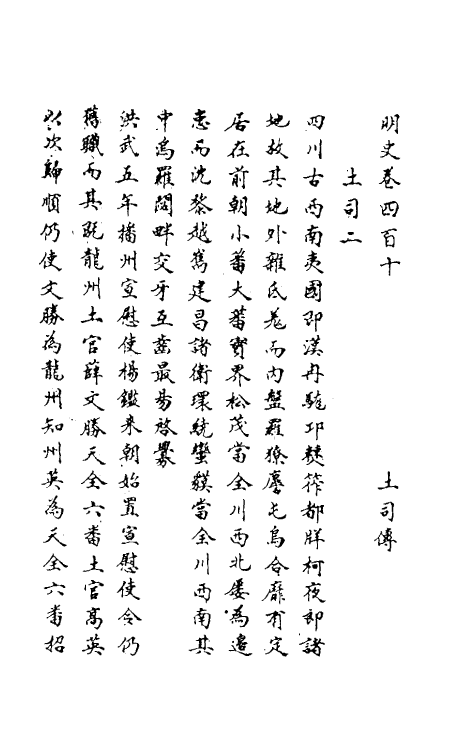 明史卷四百十 土司傳
土司二
四川古西南夷國即漢冉駹邛㯿筰都牂柯夜郎諸
地故其地外雜氐羌而內盤羅獠麼乇烏合靡有定
居在前朝小蕃大蕃實界松茂當全川西北屡為邊
患而沈黎越嶲建昌諸衛環繞蠻貘當全川西南其
中瀉羅閣畔交牙互齾最易啓釁
洪武五年播州宣慰使楊鑑来朝始置宣慰使令仍
舊職而其既龍州土官薛文勝天全六番土官高英
以次歸順仍使文勝為龍州知州英為天全六番招